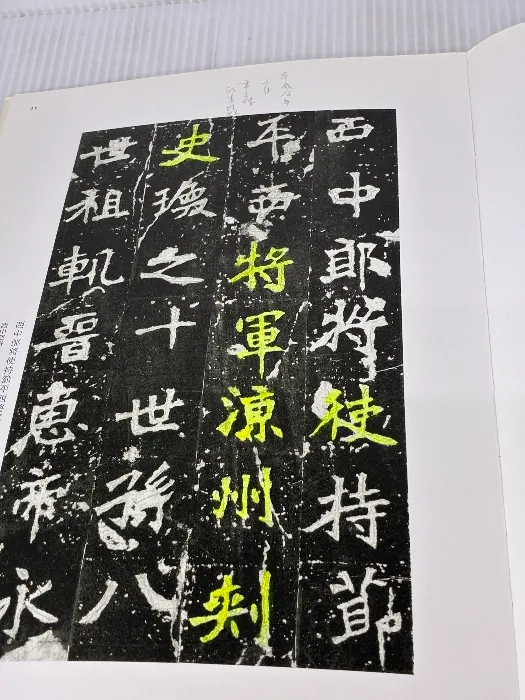 西中郎将使持節
平西将軍涼州刺
史瓊之十世孫八
世祖軌晋恵帝永